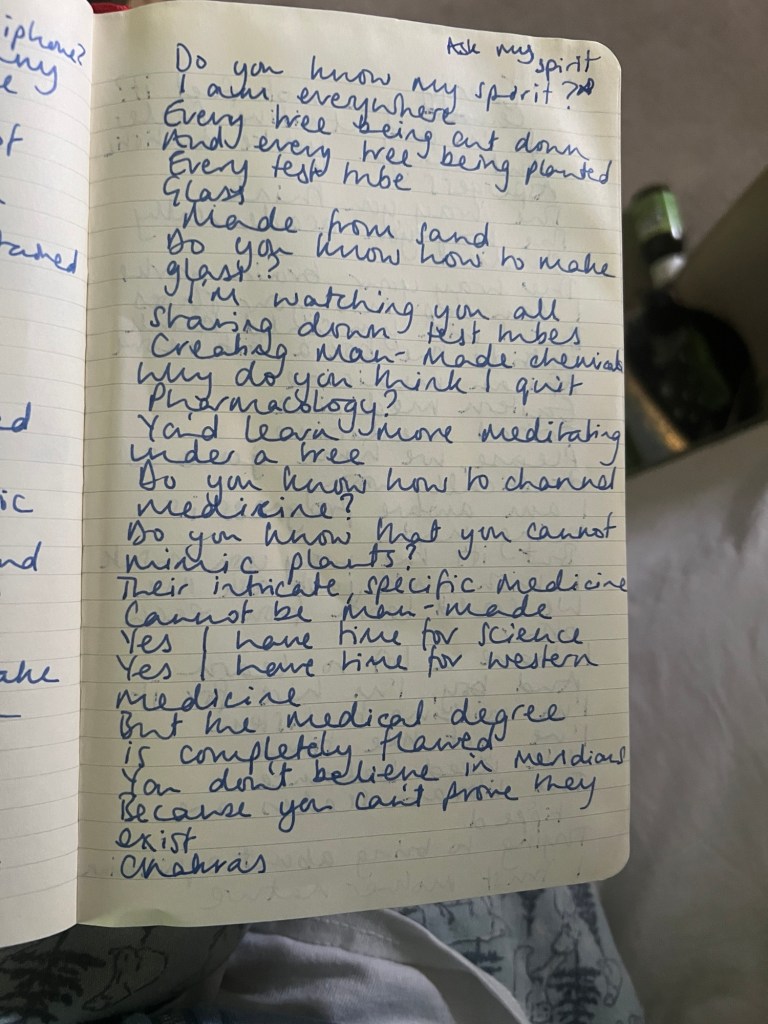 iphone?
Ask my
spirit
Do you know my spirit?
I am everywhere
Every tree being cut down
And every tree being planted
Every test tube
Glass
Made from sand
Do you know how to make
glass?
I'm watching you all
staring down test tubes
Creating man-made chemicals
Why do you think I quit
Pharmacology?
You'd learn more meditating
under a tree
Do you know how to channel
medicine?
Do you know that you cannot
mimic plants?
Their intricate, specific medicine
Cannot be man-made
Yes I have time for science
Yes I have time for western
medicine
But the medical degree
is completely flawed
You don't believe in meridians
Because you can't prove they
exist
Chakras